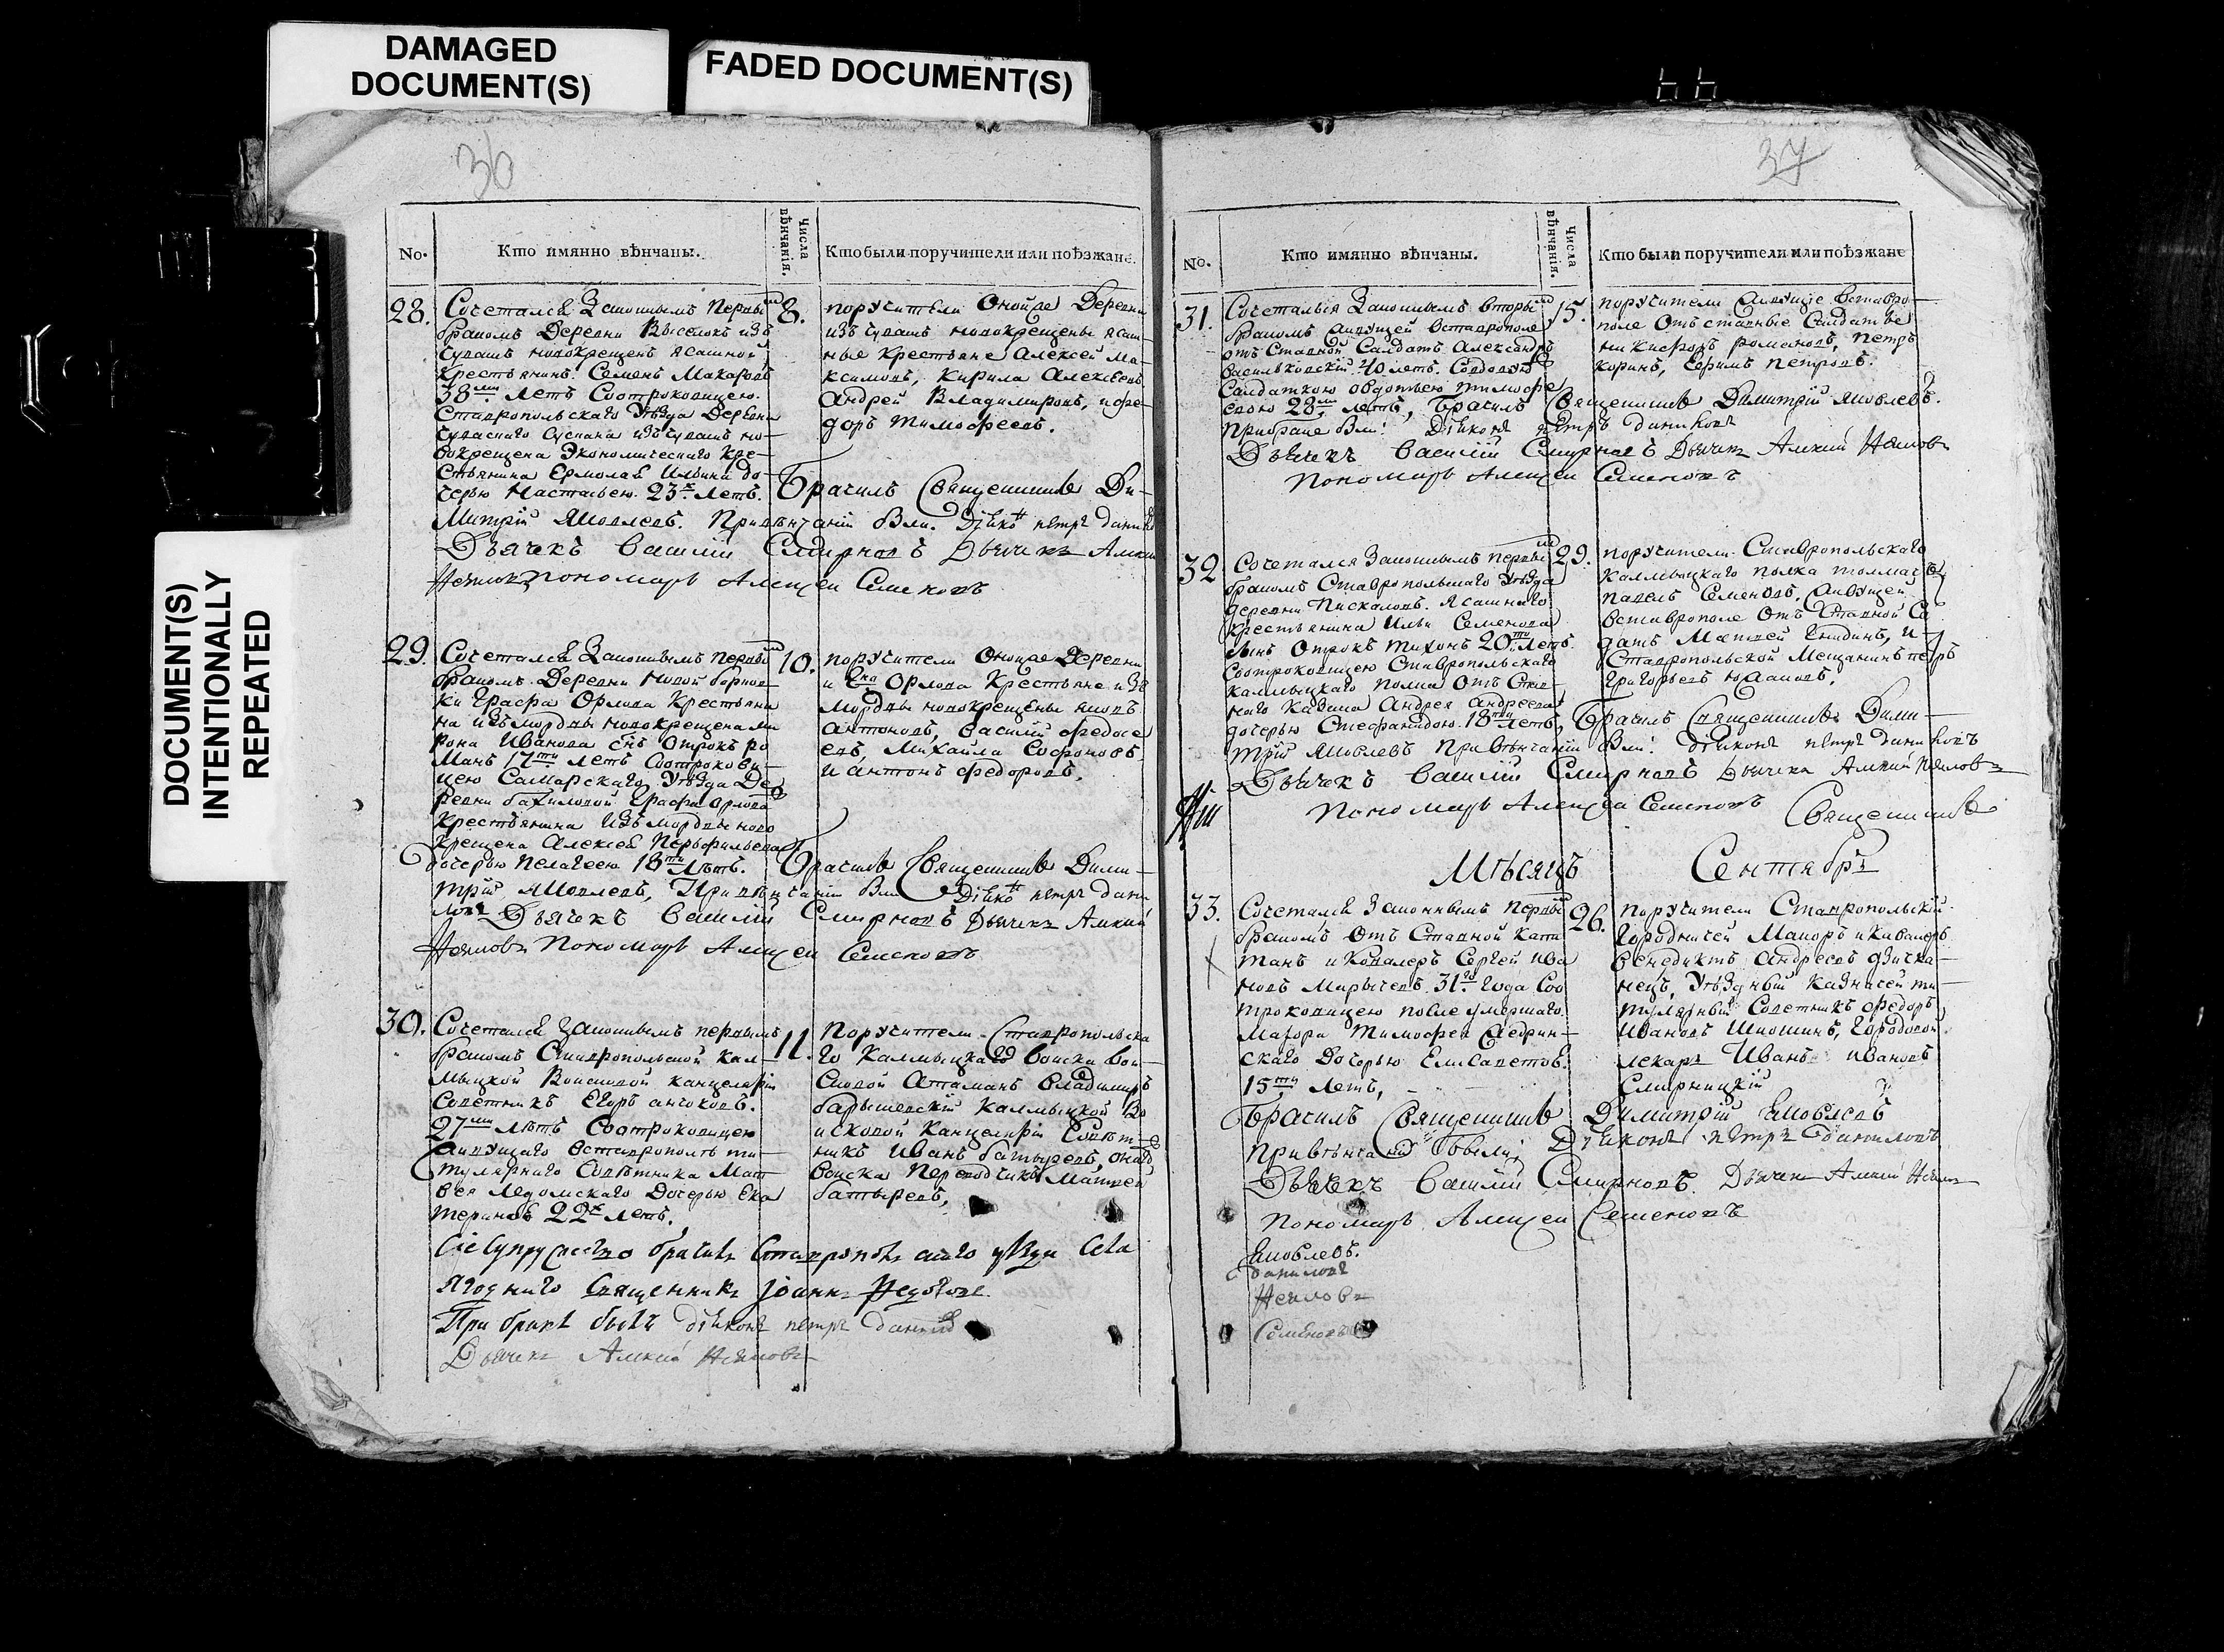 DAMAGED
DOCUMENT(S)
FADED DOCUMENT(S)
DOCUMENT(S)
INTENTIONALLY
REPEATED
36
No.
Кто имянно вѣнчаны.
Числа
вѣнчанія.
Кто были поручители или поѣзжане.
28.
Сочетался Законнымъ первы
бракомъ Деревни Выселокъ изъ
Чувашъ новокрещенъ ясашной
Крестьянинъ Семенъ Макаровъ
38 летъ Соотроковицею.
Ставропольскаго Уѣзда Деревни
изъ чувашъ но-
вокрещена Экономическаго Кре-
стьянина Ермолая Ильина до-
черью Настасьею 23 летъ.
8.
поручители Оной же Деревни
изъ чувашъ новокрещены ясаш-
ные крестьяне Алексей Ма-
ксимовъ, Кирила Алексеевъ
Андрей Владимировъ, и Фе-
доръ Тимофеевъ.
Брачилъ Священникъ Ди-
митрій Яковлевъ. При вѣнчаніи были Діяконъ петръ
Дьячекъ Василій Смирновъ Дьячекъ
Пономарь Алексей Семеновъ
29.
Сочетался Законнымъ первы
бракомъ Деревни Новой
ки Графа Орлова Крестьяни
на изъ мордвы новокрещена Ми
рона Иванова снъ Отрокъ Ро
манъ 17 летъ Соотрокови-
цею Самарскаго Уѣзда Де
ревни Бахиловой Графа Орлова
Крестьянина Изъ мордвы ново
крещена Алексея Перфильева
Дочерью Пелагеею 18 Лѣтъ.
10.
поручители Оной же Деревни
и Орлова Крестьяне изъ
мордвы новокрещены Яковъ
Антоновъ, Василій Федосе
евъ, Михайла Софроновъ
и Антонъ Федоровъ.
Брачилъ Священникъ Дими-
трій Яковлевъ, При вѣнчаніи Діяконъ петръ Дани
ловъ Дьячекъ Василій Смирновъ Дьячекъ
Пономарь Алексей Семеновъ
30.
Сочетался Законнымъ первымъ
бракомъ Ставропольской Кал-
мыцкой Войсковой канцеляріи
Советникъ Егоръ
27 лѣтъ Соотроковицею
Живущаго въ Ставрополѣ ти-
тулярнаго Совѣтника Мат
вея Ледомскаго Дочерью Ека
териною 22 летъ.
11.
Поручители Ставропольска
го Калмыцкаго войска Вой-
сковой Атаманъ Владимиръ
Барышевскій Калмыцкой Во
исковой Канцеляріи Совѣт-
никъ Иванъ Батыревъ, онаго
войска Переводчикъ Матвей
Батыревъ,
Сіе Супружество брачилъ Ставропольскаго уѣзда Села
Ягоднаго Священникъ Іоаннъ
При браке былъ діяконъ петръ Данилов
Дьячекъ
37
No.
Кто имянно вѣнчаны.
Числа
вѣнчанія.
Кто были поручители или поѣзжане
31.
Сочетался Законнымъ вторы
бракомъ живущей въ Ставрополе
отъ Ставной Салдатъ Александръ
Васильковскій 40 летъ. Со вдовою
Салдаткою Овдотьею Тимофе
евою 28 летъ,
15.
поручители живущіе в Ставро-
поле Отъ ставные Салдаты
Никифоръ Романовъ, Петръ
Коринъ, Ефимъ Петровъ.
Брачилъ Священникъ Димитрій Яковлевъ.
При браке были Діяконъ петръ Даниловъ
Дьячекъ Василій Смирновъ Дьячекъ
Пономарь Алексей Семеновъ
32
Сочетался Законнымъ первы
бракомъ Ставропольскаго Уѣзда
деревни Пискаловъ. Ясашнаго
Крестьянина Ильи Семенова
сынъ Отрокъ Тихонъ 20 Летъ.
Соотроковицею Ставропольскаго
Калмыцкаго полка Отъ Став-
наго Казака Андрея Андреева
дочерью Стефанидою 18 летъ,
29.
поручители Ставропольскаго
Калмыцкаго полка толмачъ
Павелъ Семеновъ, живущей
в Ставрополе Отъ Ставной Са
датъ Матвей и
Ставропольской Мещанинъ петръ
Григорьевъ
Брачилъ Священникъ Дими-
трій Яковлевъ При вѣнчаніи были діяконъ петръ Даниловъ
Дьячекъ Василій Смирновъ Дьячекъ
Пономарь Алексей Семеновъ Священникъ
Мѣсяцъ Сентябрь
33.
Сочетался Законнымъ первы
бракомъ Отъ Ставной Капи
танъ и Ковалеръ Сергей Ива
новъ 31 года Соо
троковицею после умершаго
Маіора Тимофея
скаго Дочерью Елисаветою.
15 летъ,
26.
Поручители Ставропольскій
Городничей Маиоръ и Кавалеръ
Венедиктъ Андреевъ
нецъ, Уѣздный Казначей ти-
тулярный Советникъ Федоръ
Ивановъ Городовой
лекарь Иванъ Ивановъ
Смирницкій
Брачилъ Священникъ Димитрій Яковлевъ
При вѣнчаніи были Діяконъ петръ Даниловъ
Дьячекъ Василій Смирновъ. Дьячекъ
Пономарь Алексей Семеновъ
Яковлевъ.
Даниловъ
Семеновъ